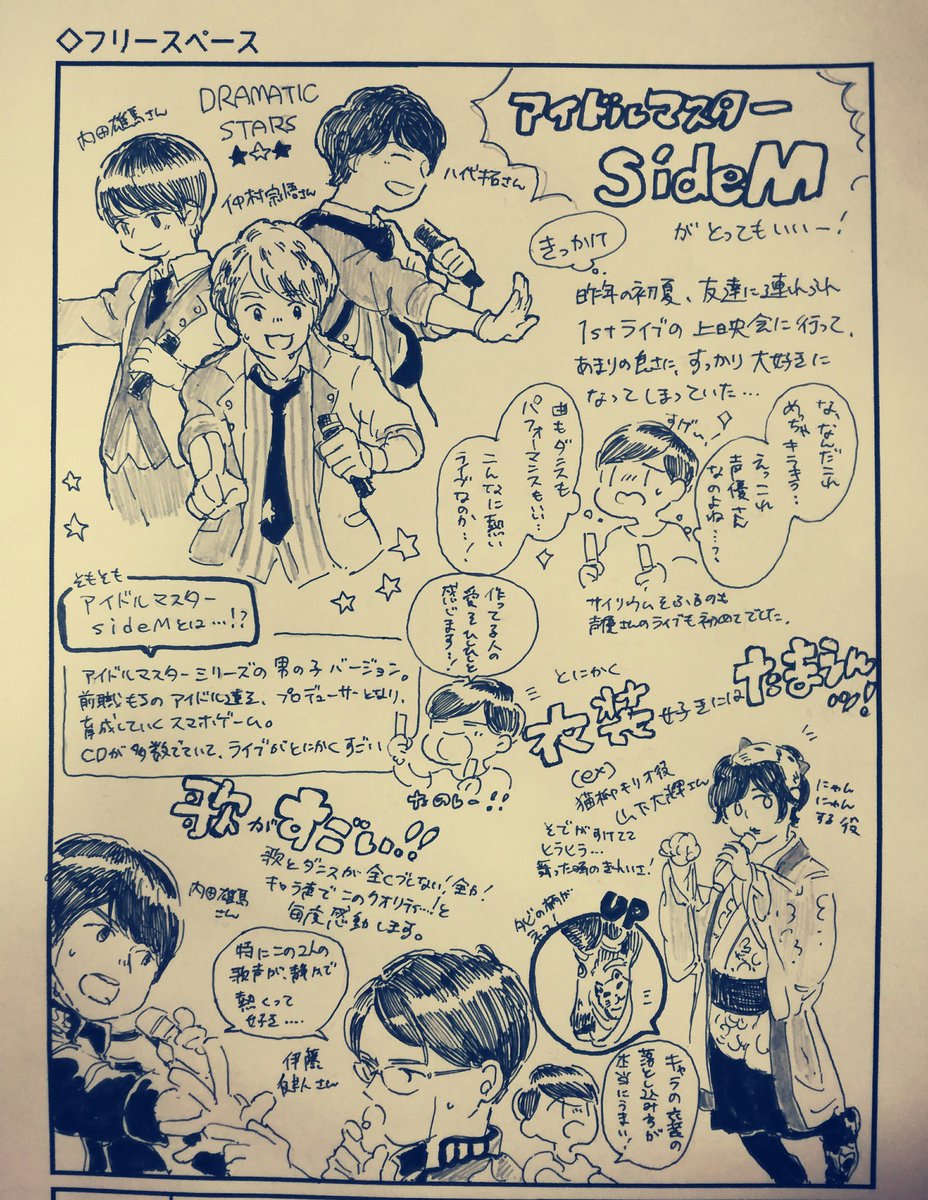 ◇フリースペース
アイドルマスター
SideM
がとってもいいー!
DRAMATIC
STARS
★☆★
内田雄馬さん
仲村宗悟さん
八代拓さん
きっかけ
昨年の初夏、友達に連れられ
1stライブの上映会に行って、
あまりの良さに、すっかり大好きに
なってしまっていた…
な、なんだこれ
めっちゃキラキラ…
えっこれ
声優さん
なのよね…?
すげー…
曲もダンスも
パフォーマンスもいい…
こんなに熱い
ライブなのか…!
サイリウムをふるのも
声優さんのライブも初めてでした。
そもそも
アイドルマスター
sideMとは…!?
アイドルマスターミリーズの男の子バージョン。
前職もちのアイドル達を、プロデューサーとなり、
育成していくスマホゲーム。
CDが多数でていて、ライブがとにかくすごい
作ってる人の
愛をひしひしと
感じます…!
たのしー!!
とにかく
衣装好きにはたまらん
ッッ!
(ex)
猫柳キリオ役
山下大輝さん
にゃん
にゃん
する役
そでがすけてて
とうとう…
舞った時のきれいさ!
タビの柄が
UP
キャラの衣装の
落とし込み方が
本当にうまい!
歌がすごい!!
歌とダンスが全くブレない!全力!
キャラ声でこのクオリティ…!と
毎度感動します。
内田雄馬
さん
特にこの2人の
歌声が、静かで
熱くって
好き….
伊藤
健人さん